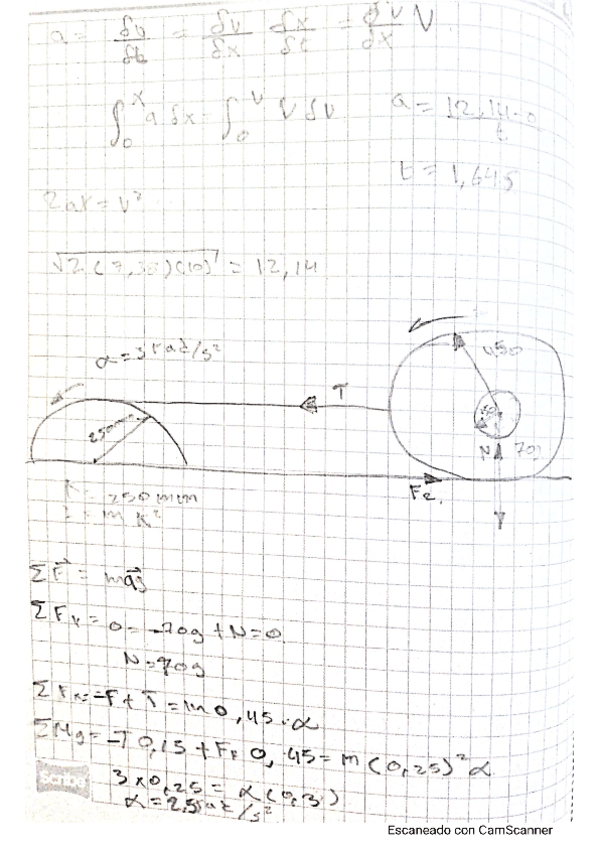 a = δv/δt = δv/δx δx/δt = δv/δx V
∫₀ˣ a δx = ∫₀ᵛ V δV
a = 12,14-0/t
t = 1,64 s
2ax = V²
√2 (7,35)(10) = 12,14
α = 3 rad/s²
T
450
250mm
N
70g
Fr
K = 250 mm
I = m K²
ΣF = mag
ΣFy = 0 = -70g + N = 0
N = 70g
ΣFx = -F + T = m 0,45·α
ΣMg = -T 0,15 + Fr 0,45 = m (0,25)² α
3 x 0,25 = α (0,3)
α = 2,5 rad/s²
Scribe
Escaneado con CamScanner